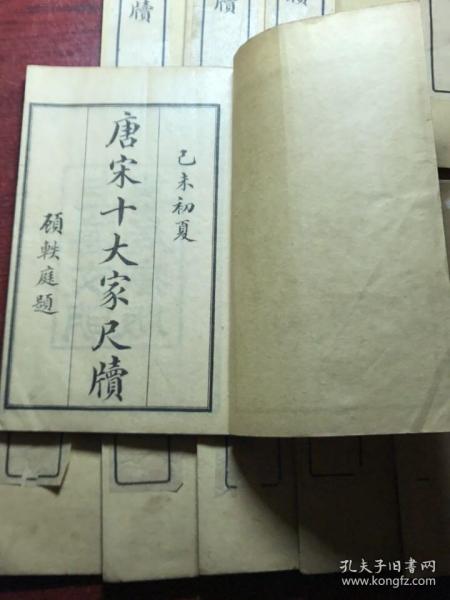 己未初夏
唐宋十大家尺牘
顧軼庭題
牘
牘
牘
孔夫子旧书网
www.kongfz.com